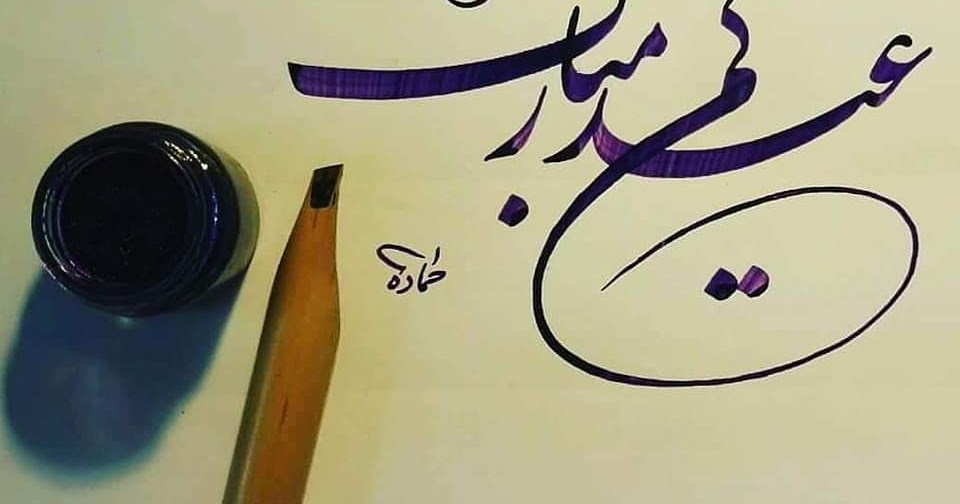 عيدكم مبارك
حماده